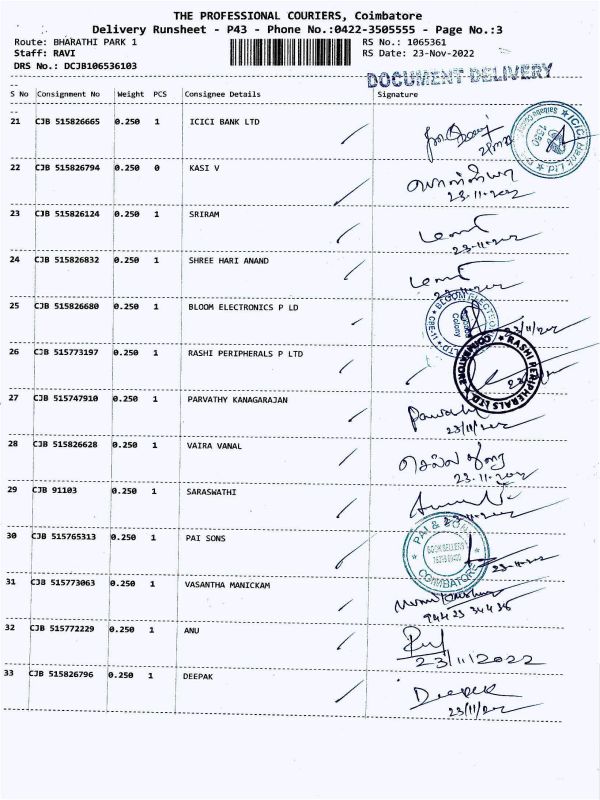 THE PROFESSIONAL COURIERS, Coimbatore
Delivery Runsheet - P43 - Phone No.:0422-3505555 - Page No.:3
Route: BHARATHI PARK 1 RS No.: 1065361
Staff: RAVI RS Date: 23-Nov-2022
DRS No.: DCJB106536103
DOCUMENT DELIVERY
S No Consignment No Weight PCS Consignee Details Signature
21 CJB 515826665 0.250 1 ICICI BANK LTD
ICICI Bank Ltd
1550
22 CJB 515826794 0.250 0 KASI V
23.11.2022
23 CJB 515826124 1 SRIRAM
0.250
23-11-2022
24 CJB 515826832 0.250 1 SHREE HARI ANAND
23-11-2022
25 CJB 515826680 0.250 1 BLOOM ELECTRONICS P LD
BLOOM ELECTRO
Colony
23/11/2022
26 CJB 515773197 0.250 1 RASHI PERIPHERALS P LTD
RASHI PERIPHERALS LTD.
COIMBATORE
27 CJB 515747910 0.250 1 PARVATHY KANAGARAJAN
23/11/2022
28 CJB 515826628 0.250 1 VAIRA VANAL
23.11.2022
29 CJB 91103 0.250 1 SARASWATHI
23-11-2022
30 CJB 515765313 0.250 1 PAI SONS
PAI & SON
BOOK SELLERS
COIMBATORE
23-11-2022
31 CJB 515773063 0.250 1 VASANTHA MANICKAM
94423 34436
32 CJB 515772229 0.250 1 ANU
23/11/2022
33 CJB 515826796 0.250 1 DEEPAK
Deepak
23/11/2022